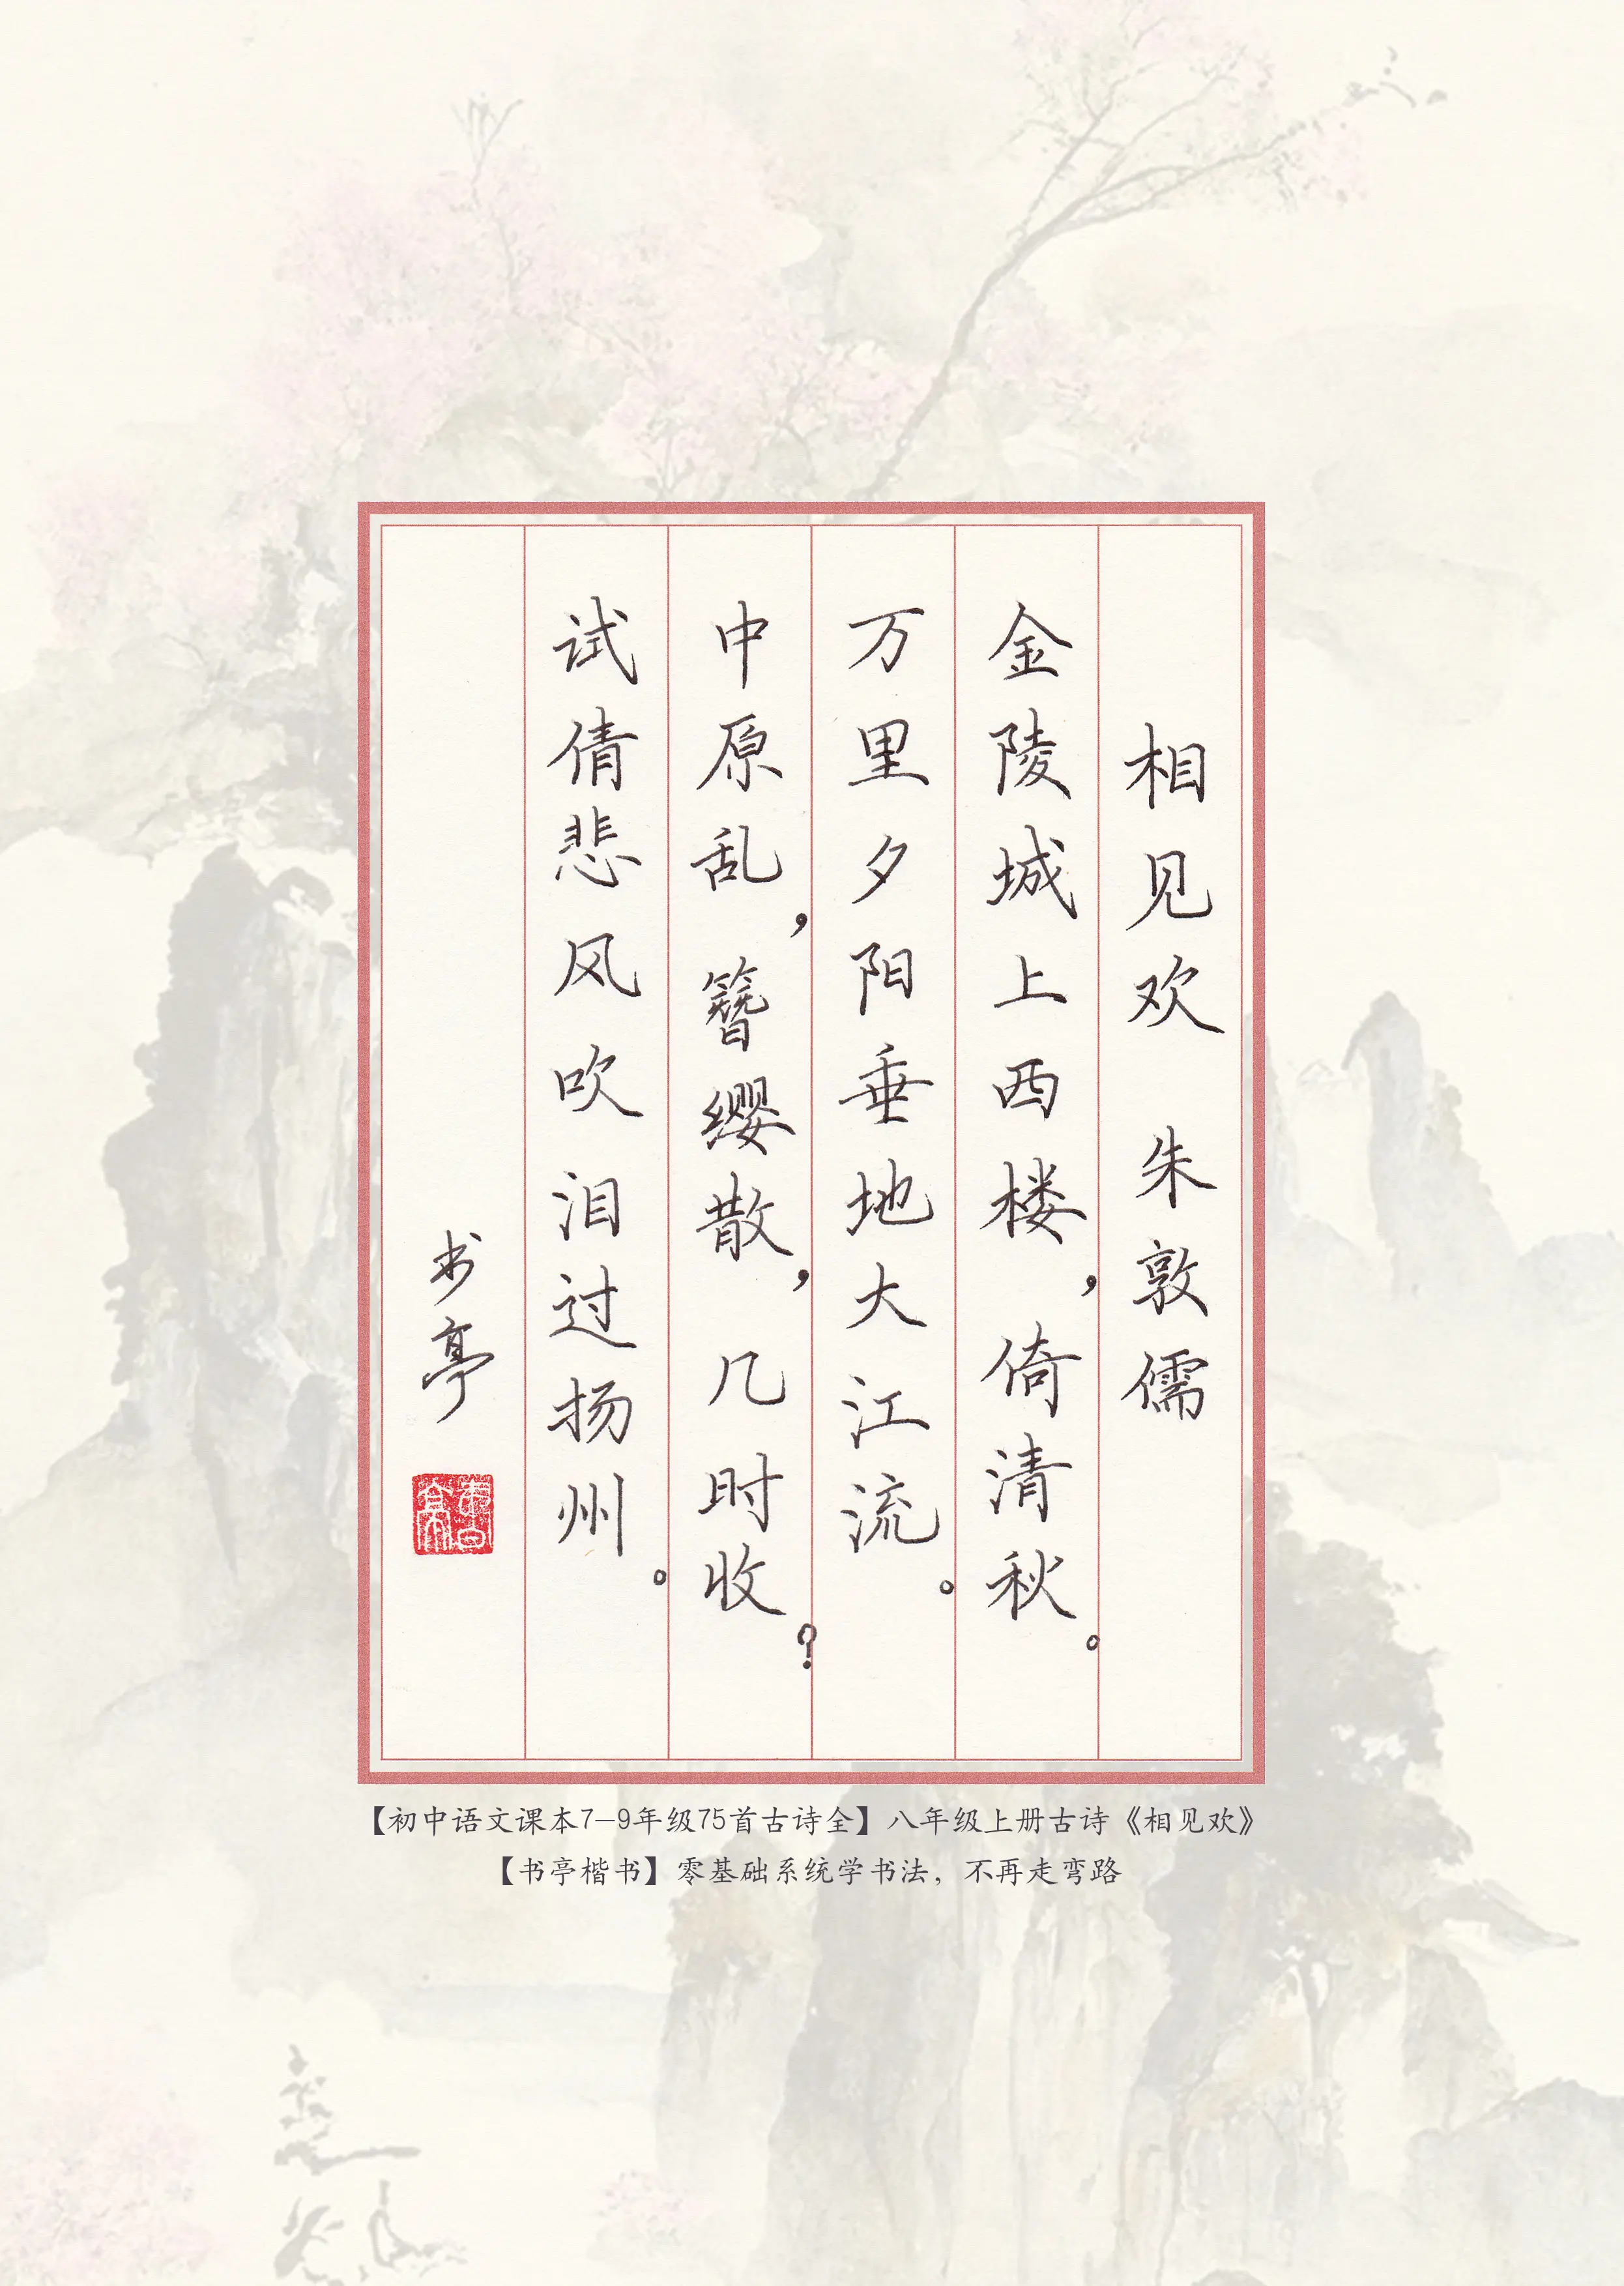 相见欢 朱敦儒
金陵城上西楼，倚清秋。
万里夕阳垂地大江流。
中原乱，簪缨散，几时收？
试倩悲风吹泪过扬州。
书亭
【初中语文课本7-9年级75首古诗全】八年级上册古诗《相见欢》
【书亭楷书】零基础系统学书法，不再走弯路